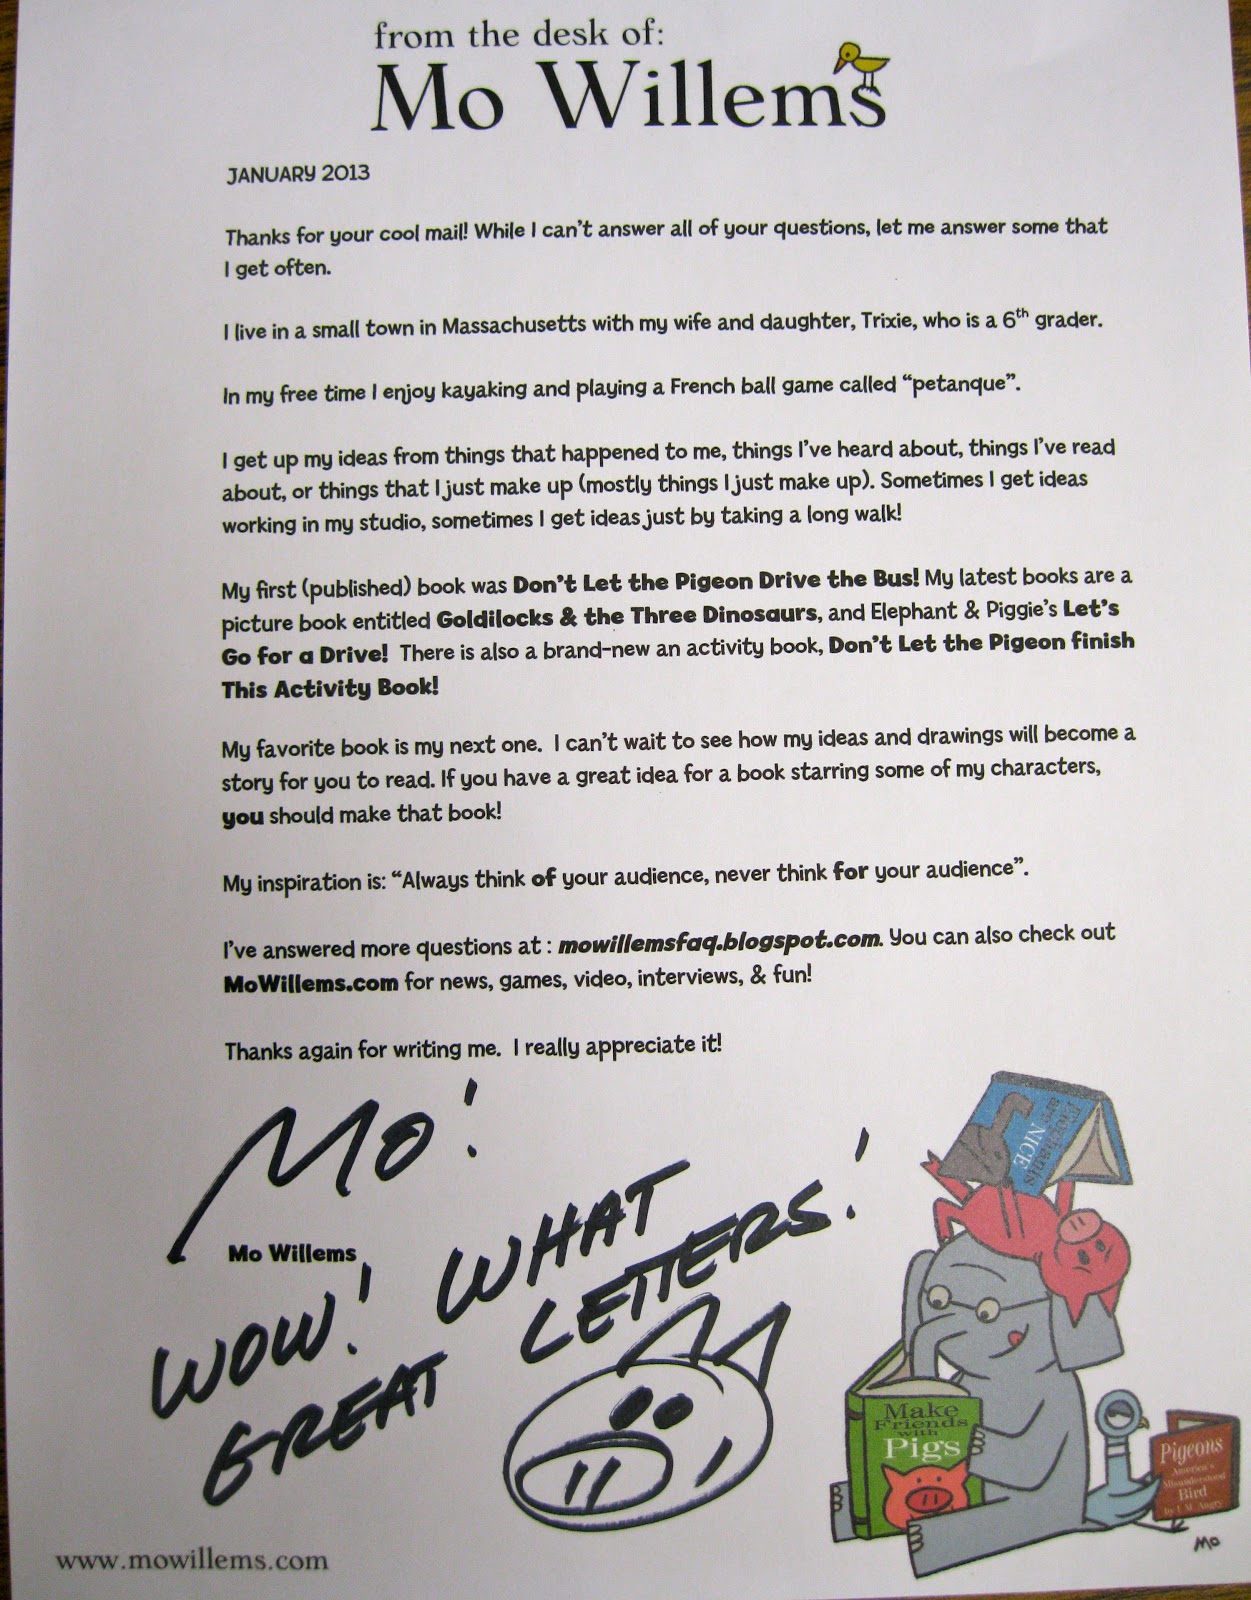 from the desk of:
Mo Willems
JANUARY 2013
Thanks for your cool mail! While I can't answer all of your questions, let me answer some that
I get often.
I live in a small town in Massachusetts with my wife and daughter, Trixie, who is a 6th grader.
In my free time I enjoy kayaking and playing a French ball game called “petanque”.
I get up my ideas from things that happened to me, things I've heard about, things I've read
about, or things that I just make up (mostly things I just make up). Sometimes I get ideas
working in my studio, sometimes I get ideas just by taking a long walk!
My first (published) book was Don't Let the Pigeon Drive the Bus! My latest books are a
picture book entitled Goldilocks & the Three Dinosaurs, and Elephant & Piggie's Let's
Go for a Drive! There is also a brand-new an activity book, Don't Let the Pigeon finish
This Activity Book!
My favorite book is my next one. I can't wait to see how my ideas and drawings will become a
story for you to read. If you have a great idea for a book starring some of my characters,
you should make that book!
My inspiration is: “Always think of your audience, never think for your audience”.
I've answered more questions at : mowillemsfaq.blogspot.com. You can also check out
MoWillems.com for news, games, video, interviews, & fun!
Thanks again for writing me. I really appreciate it!
Mo!
Mo Willems
WOW! WHAT
GREAT LETTERS!
Elephants
are NICE
Make
Friends
with
Pigs
Pigeons
America's
Misunderstood
Bird
by I. M. Angry
Mo
www.mowillems.com